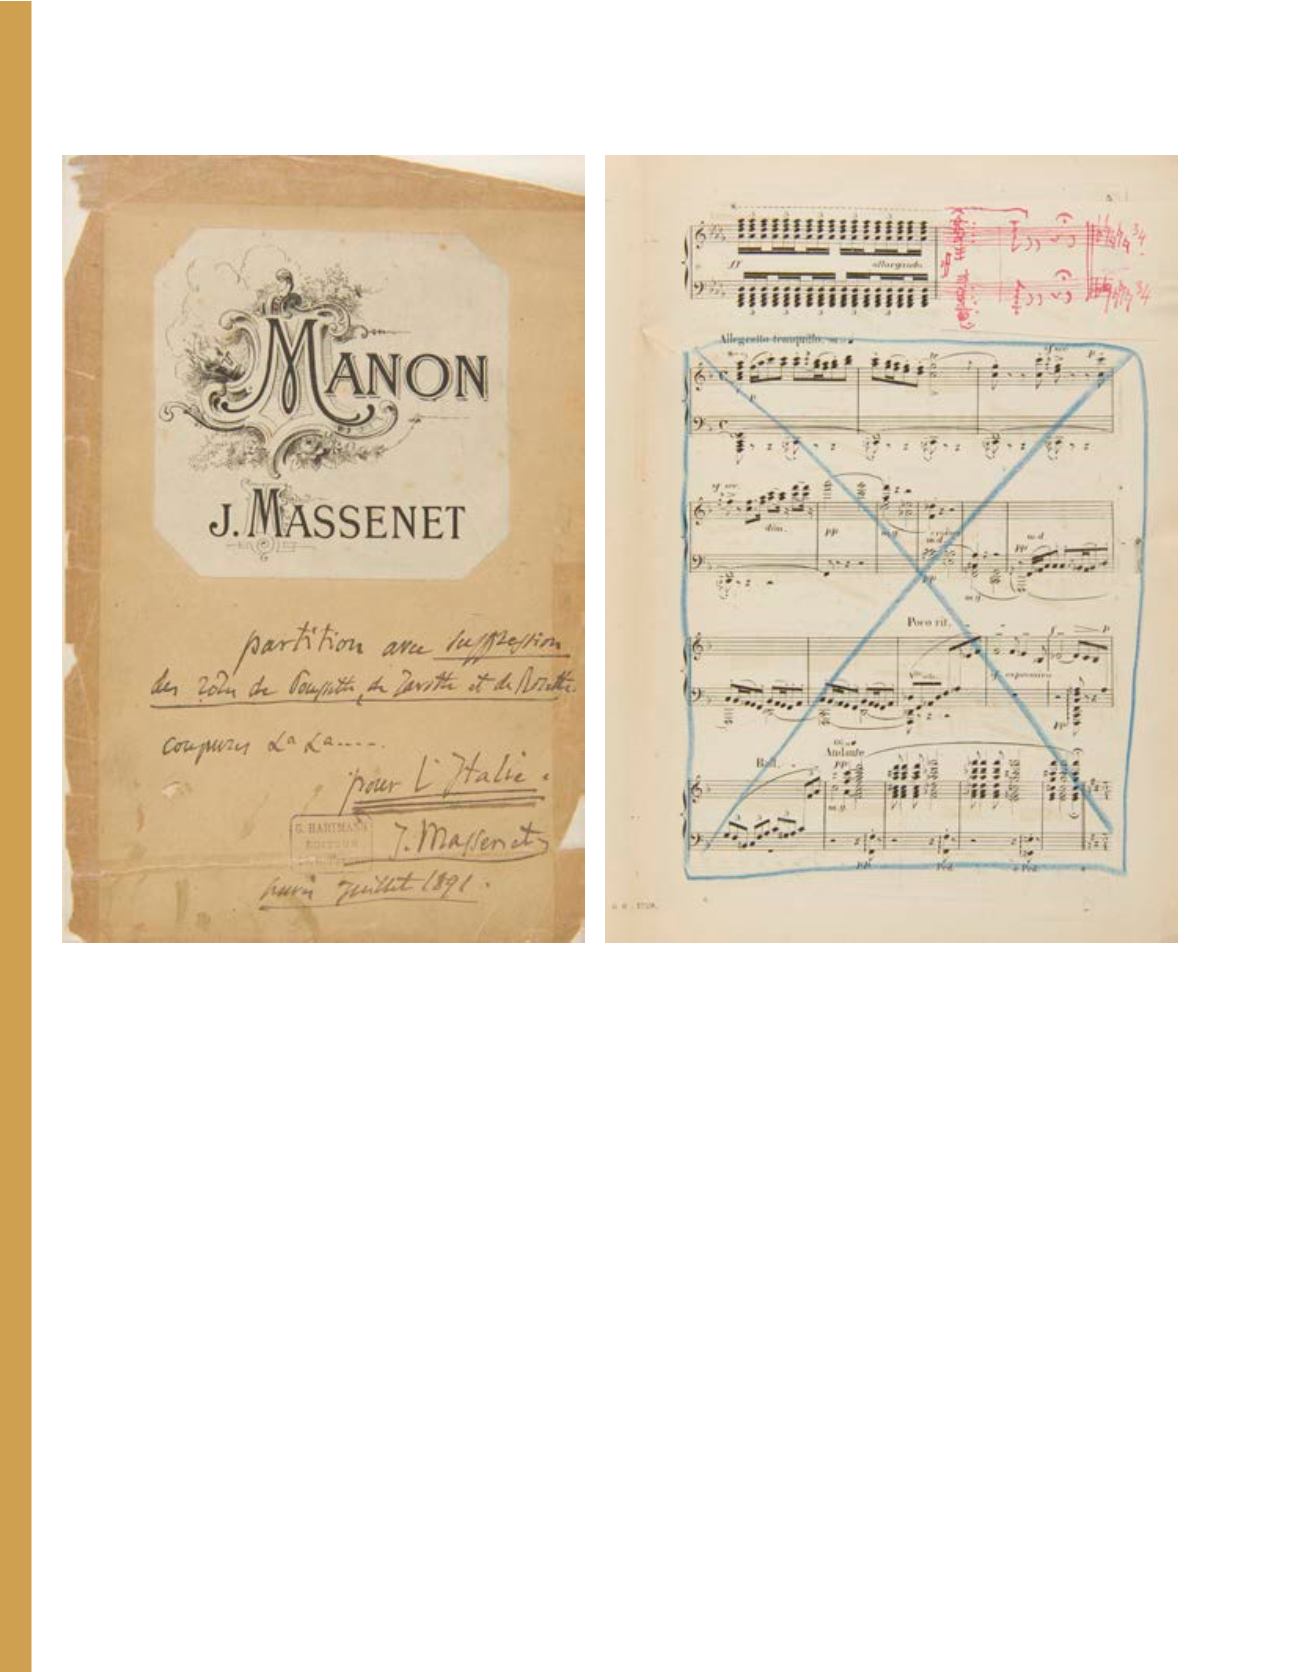 MANON
J. MASSENET
partition avec suppression
des rôles de Poussette, de Javotte et de Rosette.
coupures
pour L'Italie.
G. HARTMANN
EDITEUR
J. Massenet
Paris Juillet 1891.
ff allargando.
3/4
3/4
Allegretto tranquillo.
p
p
dim.
pp
m.g
m.d
m.d
pp
pp
m.g
Poco rit.
f p
espressivo
pp
Rall.
Andante
pp
m.g
Ped. Ped.